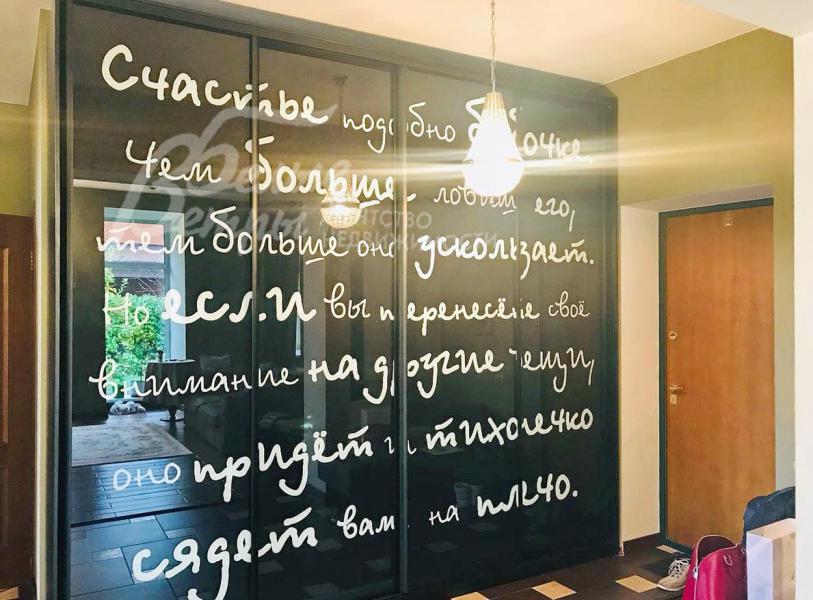 Счастье подобно бабочке.
Чем больше ловишь его,
тем больше оно ускользает.
Но если вы перенесёте своё
внимание на другие вещи,
оно придёт и тихонечко
сядет вам на плечо.
Белые Ветры
АГЕНТСТВО
НЕДВИЖИМОСТИ